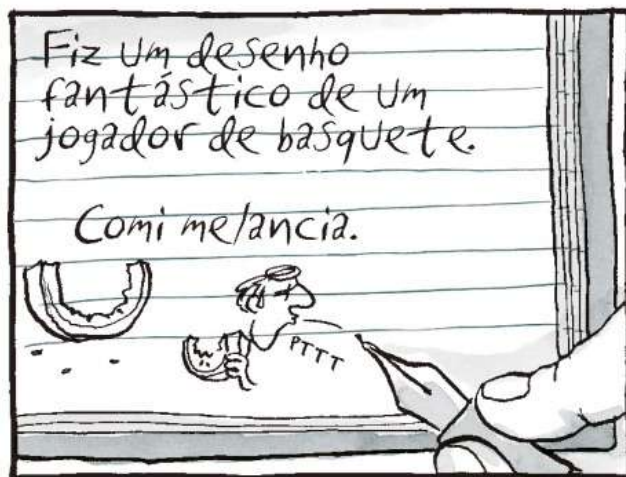 Fiz um desenho
fantástico de um
jogador de basquete.
Comi melancia.
PTTT